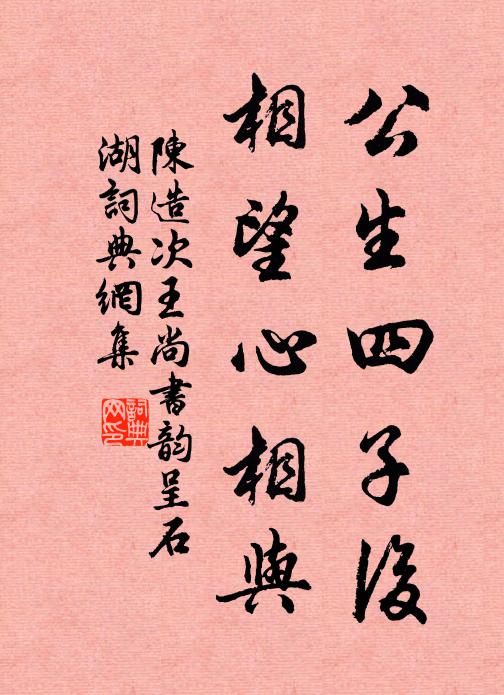 公生四子後
相望心相與
陳造次王尚書韵呈石
湖詞典網集
詞典
网印